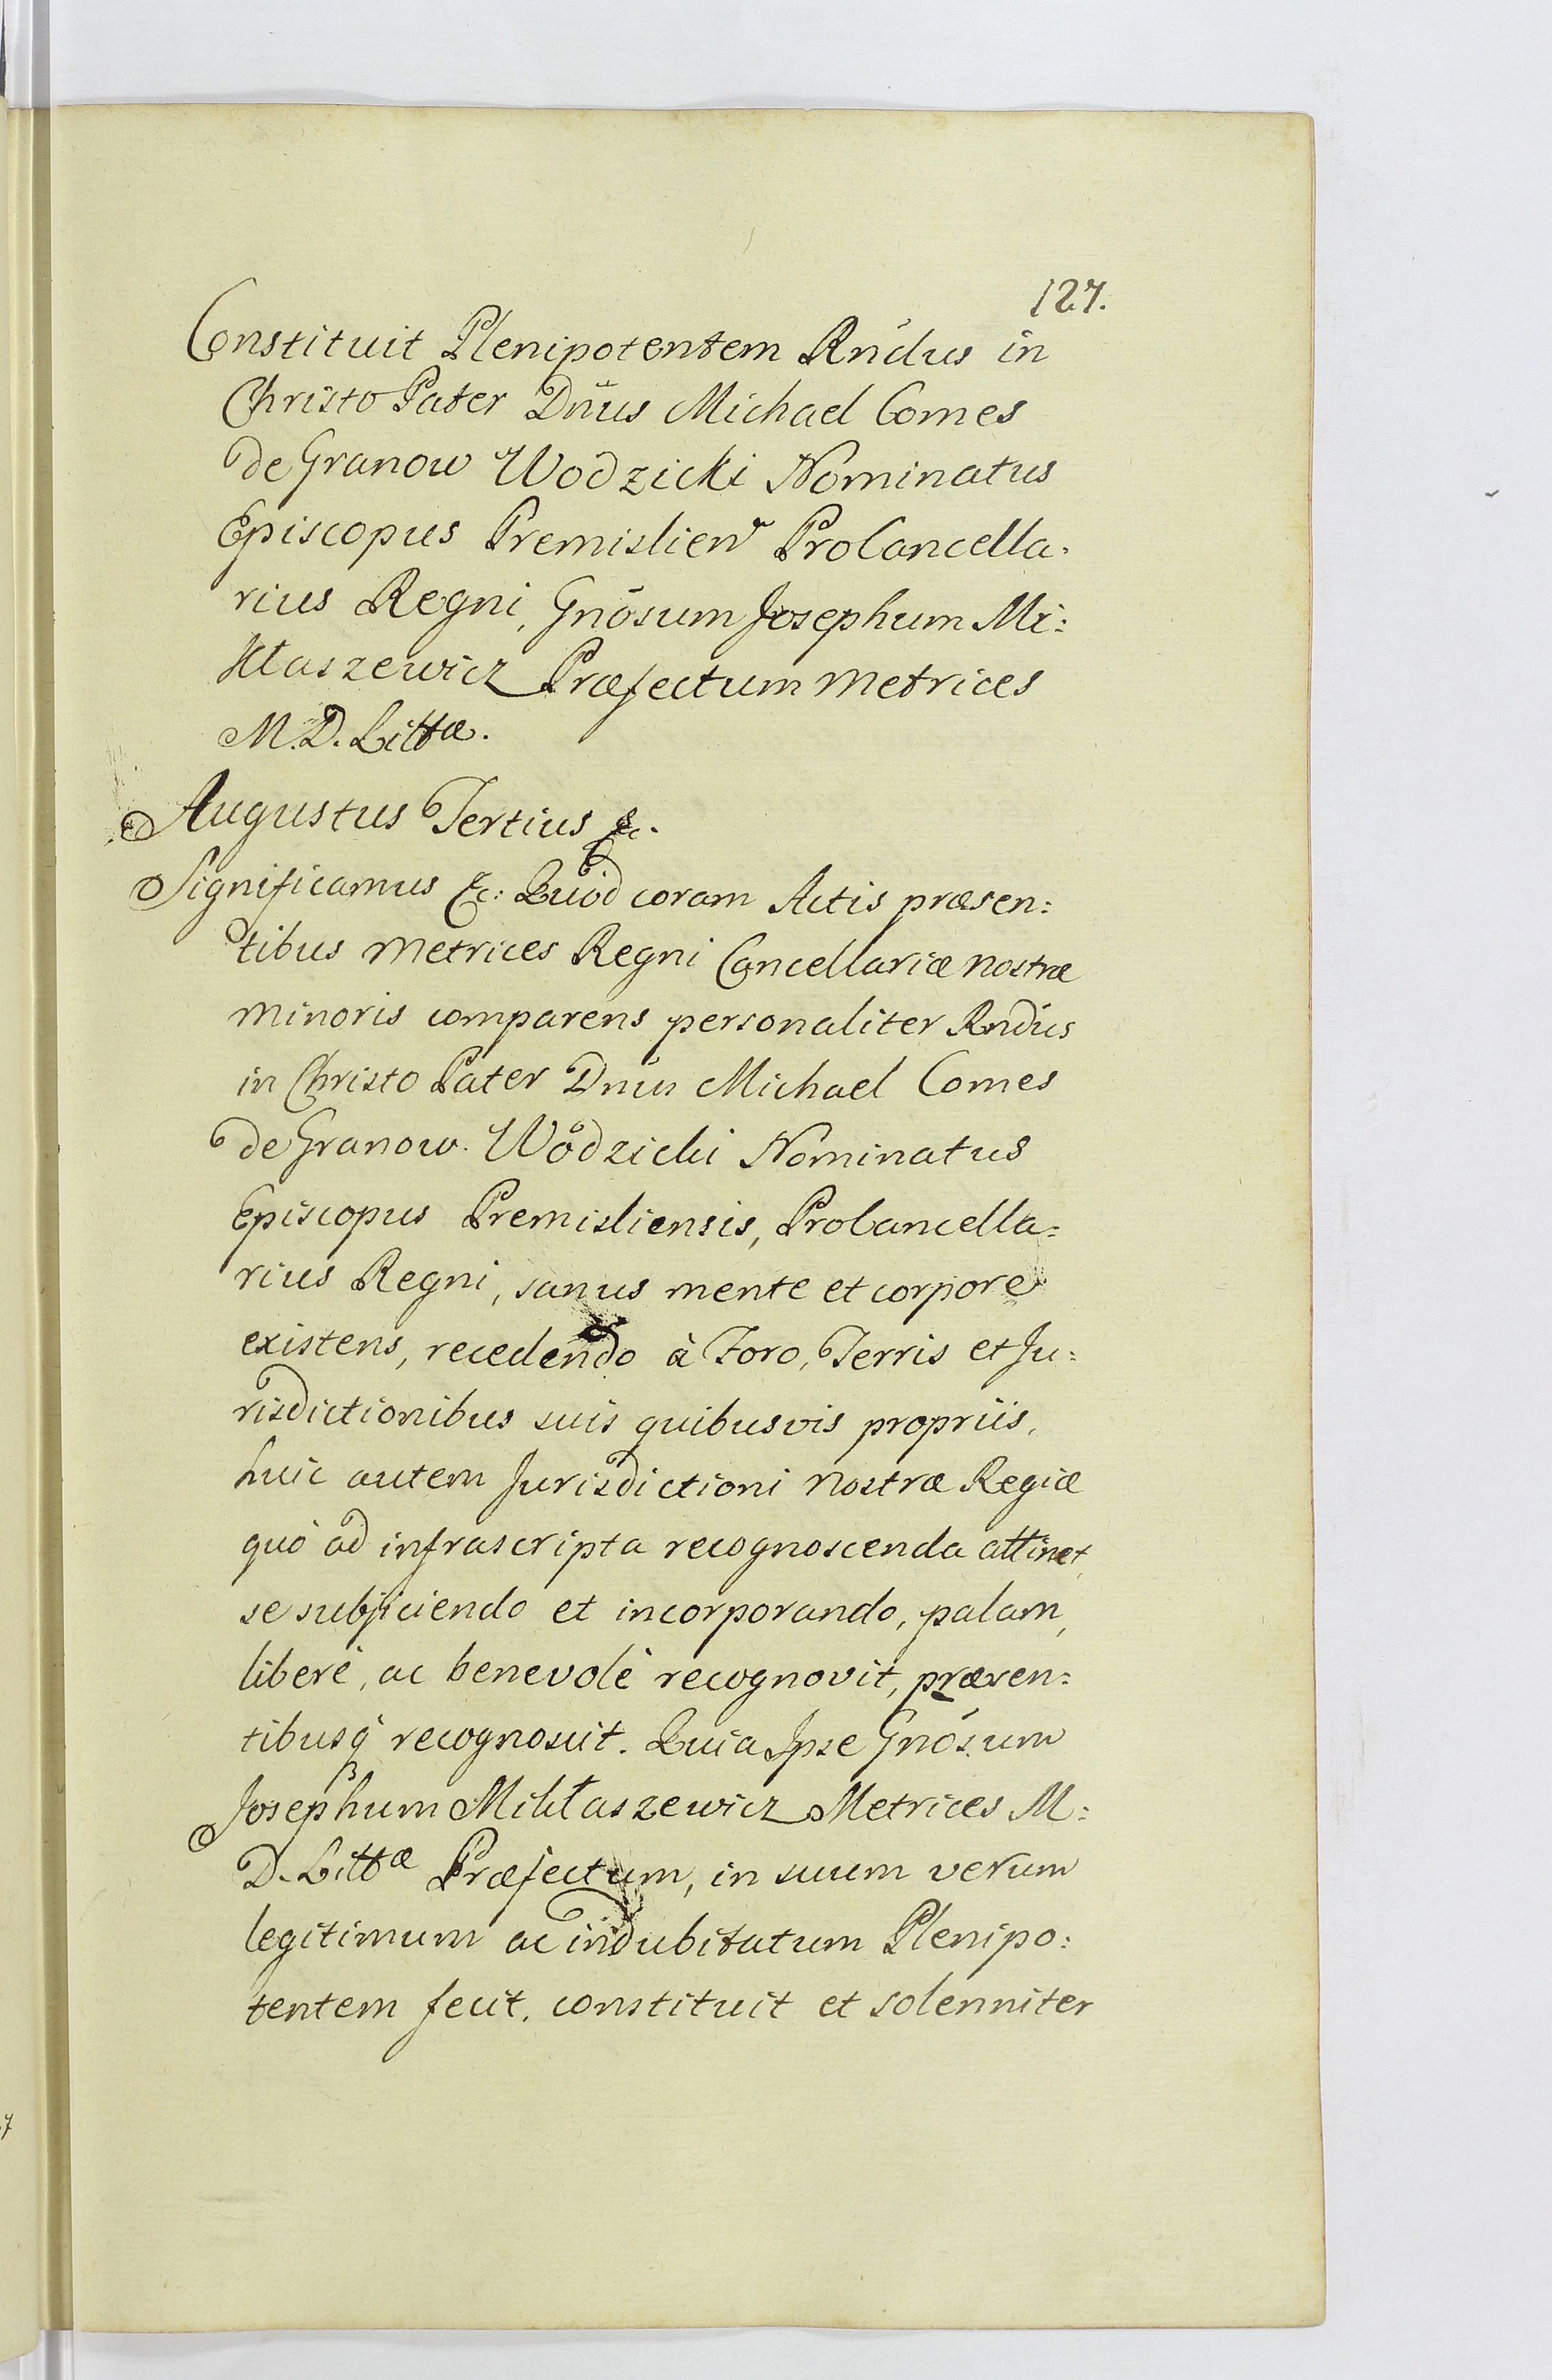 127.
Constituit Plenipotentem Rńdus in
Christo Pater Dńus Michael Comes
de Granow Wodzicki Nominatus
Episcopus Premislien ProCancella-
rius Regni, Gnōsum Josephum Mi:
kłaszewicz Præfectum Metrices
M. D. Littæ.
Augustus Tertius &c.
Significamus &c: Quod coram Actis præsen:
tibus Metrices Regni Cancellariæ nostræ
Minoris comparens personaliter Rndus
in Christo Pater Dnus Michael Comes
de Granow. Wodzicki Nominatus
Episcopus Premisliensis, ProCancella:
rius Regni, sanus mente et corpore
existens, recedendo à Foro, Terris et Ju:
risdictionibus suis quibusvis propriis,
huic autem Jurisdictioni nostræ Regiæ
quò ad infrascripta recognoscenda attinet,
se subjiciendo et incorporando, palam,
liberè, ac benevolè recognovit, præsen:
tibusq́ recognoscit. Quia Ipse Gnósum
Josephum Mikłaszewicz Metrices M:
D. Littæ Præfectum, in suum verum
legitimum ac indubitatum Plenipo:
tentem fecit, constituit et solenniter
7